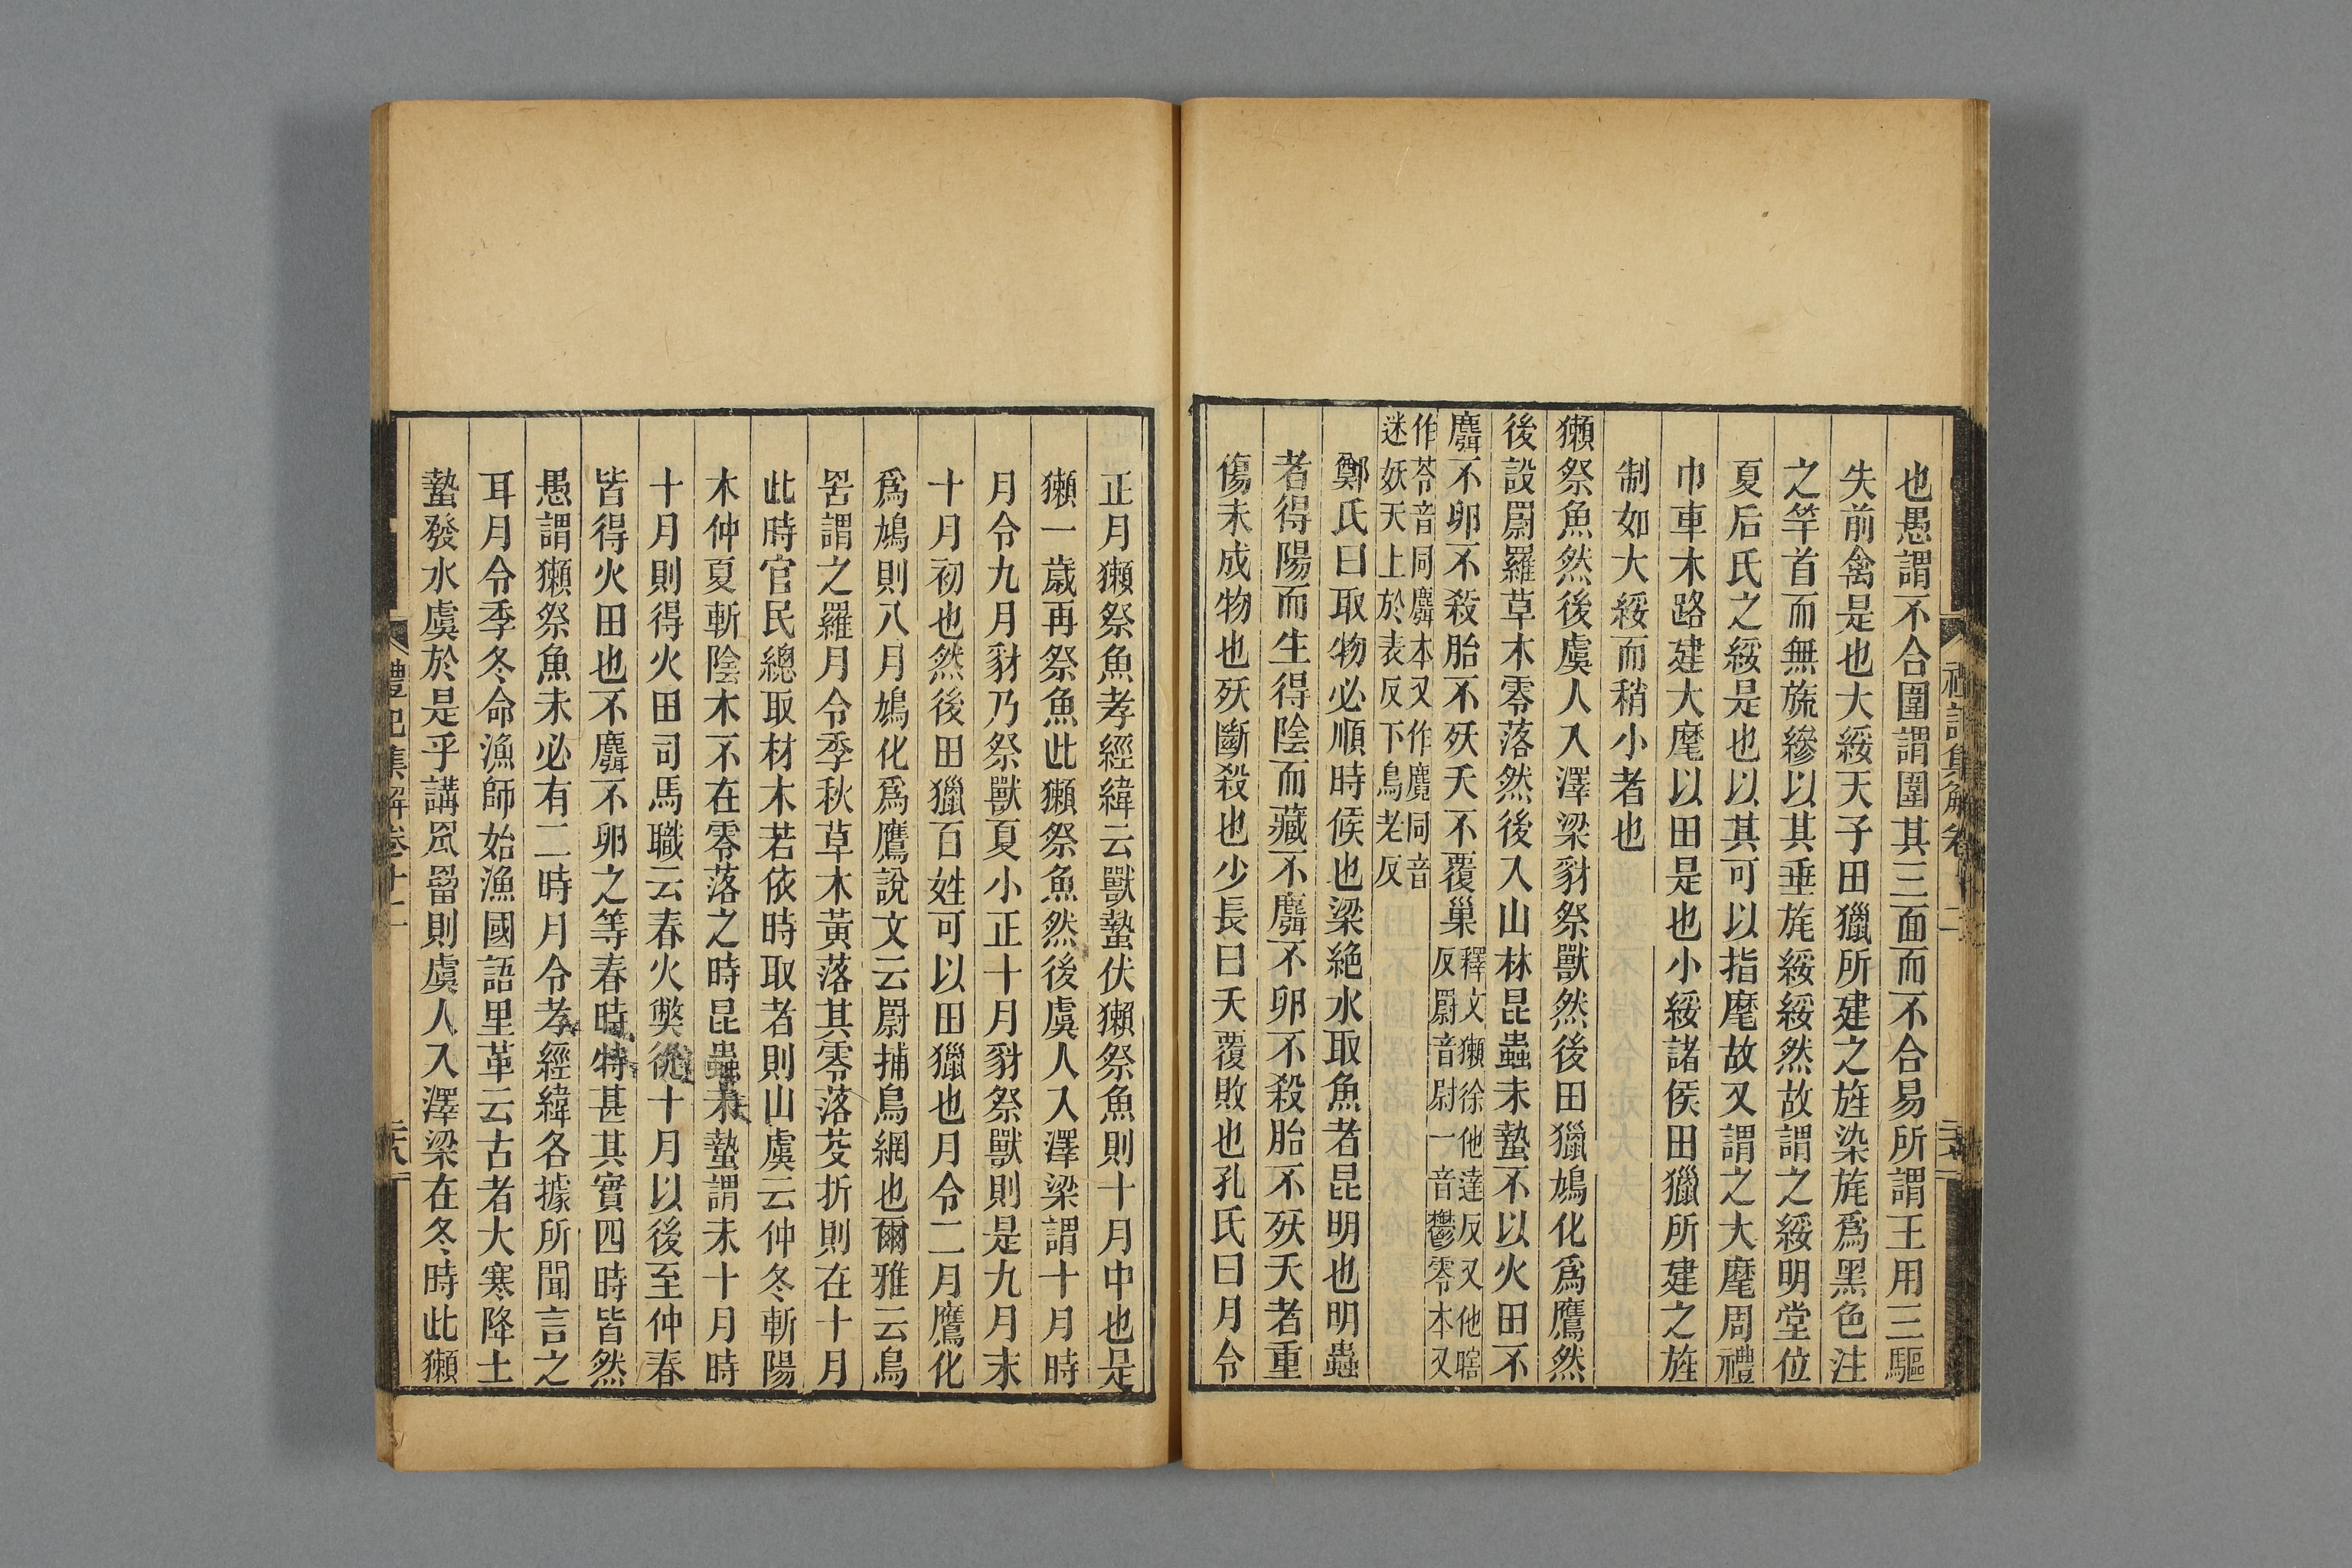 也愚謂不合圍謂圍其三面而不合易所謂王用三驅
失前禽是也大綏天子田獵所建之旌染旄爲黑色注
之竿首而無旒縿以其垂旄綏綏然故謂之綏明堂位
夏后氏之綏是也以其可以指麾故又謂之大麾周禮
巾車木路建大麾以田是也小綏諸侯田獵所建之旌
制如大綏而稍小者也
獺祭魚然後虞人入澤梁豺祭獸然後田獵鳩化爲鷹然
後設罻羅草木零落然後入山林昆蟲未蟄不以火田不
麛不卵不殺胎不殀夭不覆巢
釋文獺徐他達反又他瞎
反罻音尉一音鬱零本又
作苓音同麛本又作麑同音
迷妖夭上於表反下烏老反
鄭氏曰取物必順時候也梁絕水取魚者昆明也明蟲
者得陽而生得陰而藏不麛不卵不殺胎不殀夭者重
傷未成物也殀斷殺也少長曰夭覆敗也孔氏曰月令
正月獺祭魚孝經緯云獸蟄伏獺祭魚則十月中也是
獺一歲再祭魚此獺祭魚然後虞人入澤梁謂十月時
月令九月豺乃祭獸夏小正十月豺祭獸則是九月末
十月初也然後田獵百姓可以田獵也月令二月鷹化
爲鳩則八月鳩化爲鷹說文云罻捕鳥網也爾雅云鳥
罟謂之羅月令季秋草木黃落其零落芟折則在十月
此時官民總取材木若依時取者則山虞云仲冬斬陽
木仲夏斬陰木不在零落之時昆蟲未蟄謂未十月時
十月則得火田司馬職云春火弊從十月以後至仲春
皆得火田也不麛不卵之等春時特甚其實四時皆然
愚謂獺祭魚未必有二時月令孝經緯各據所聞言之
耳月令季冬命漁師始漁國語里革云古者大寒降土
蟄發水虞於是乎講罛罶則虞人入澤梁在冬時此獺
禮記集解卷十二